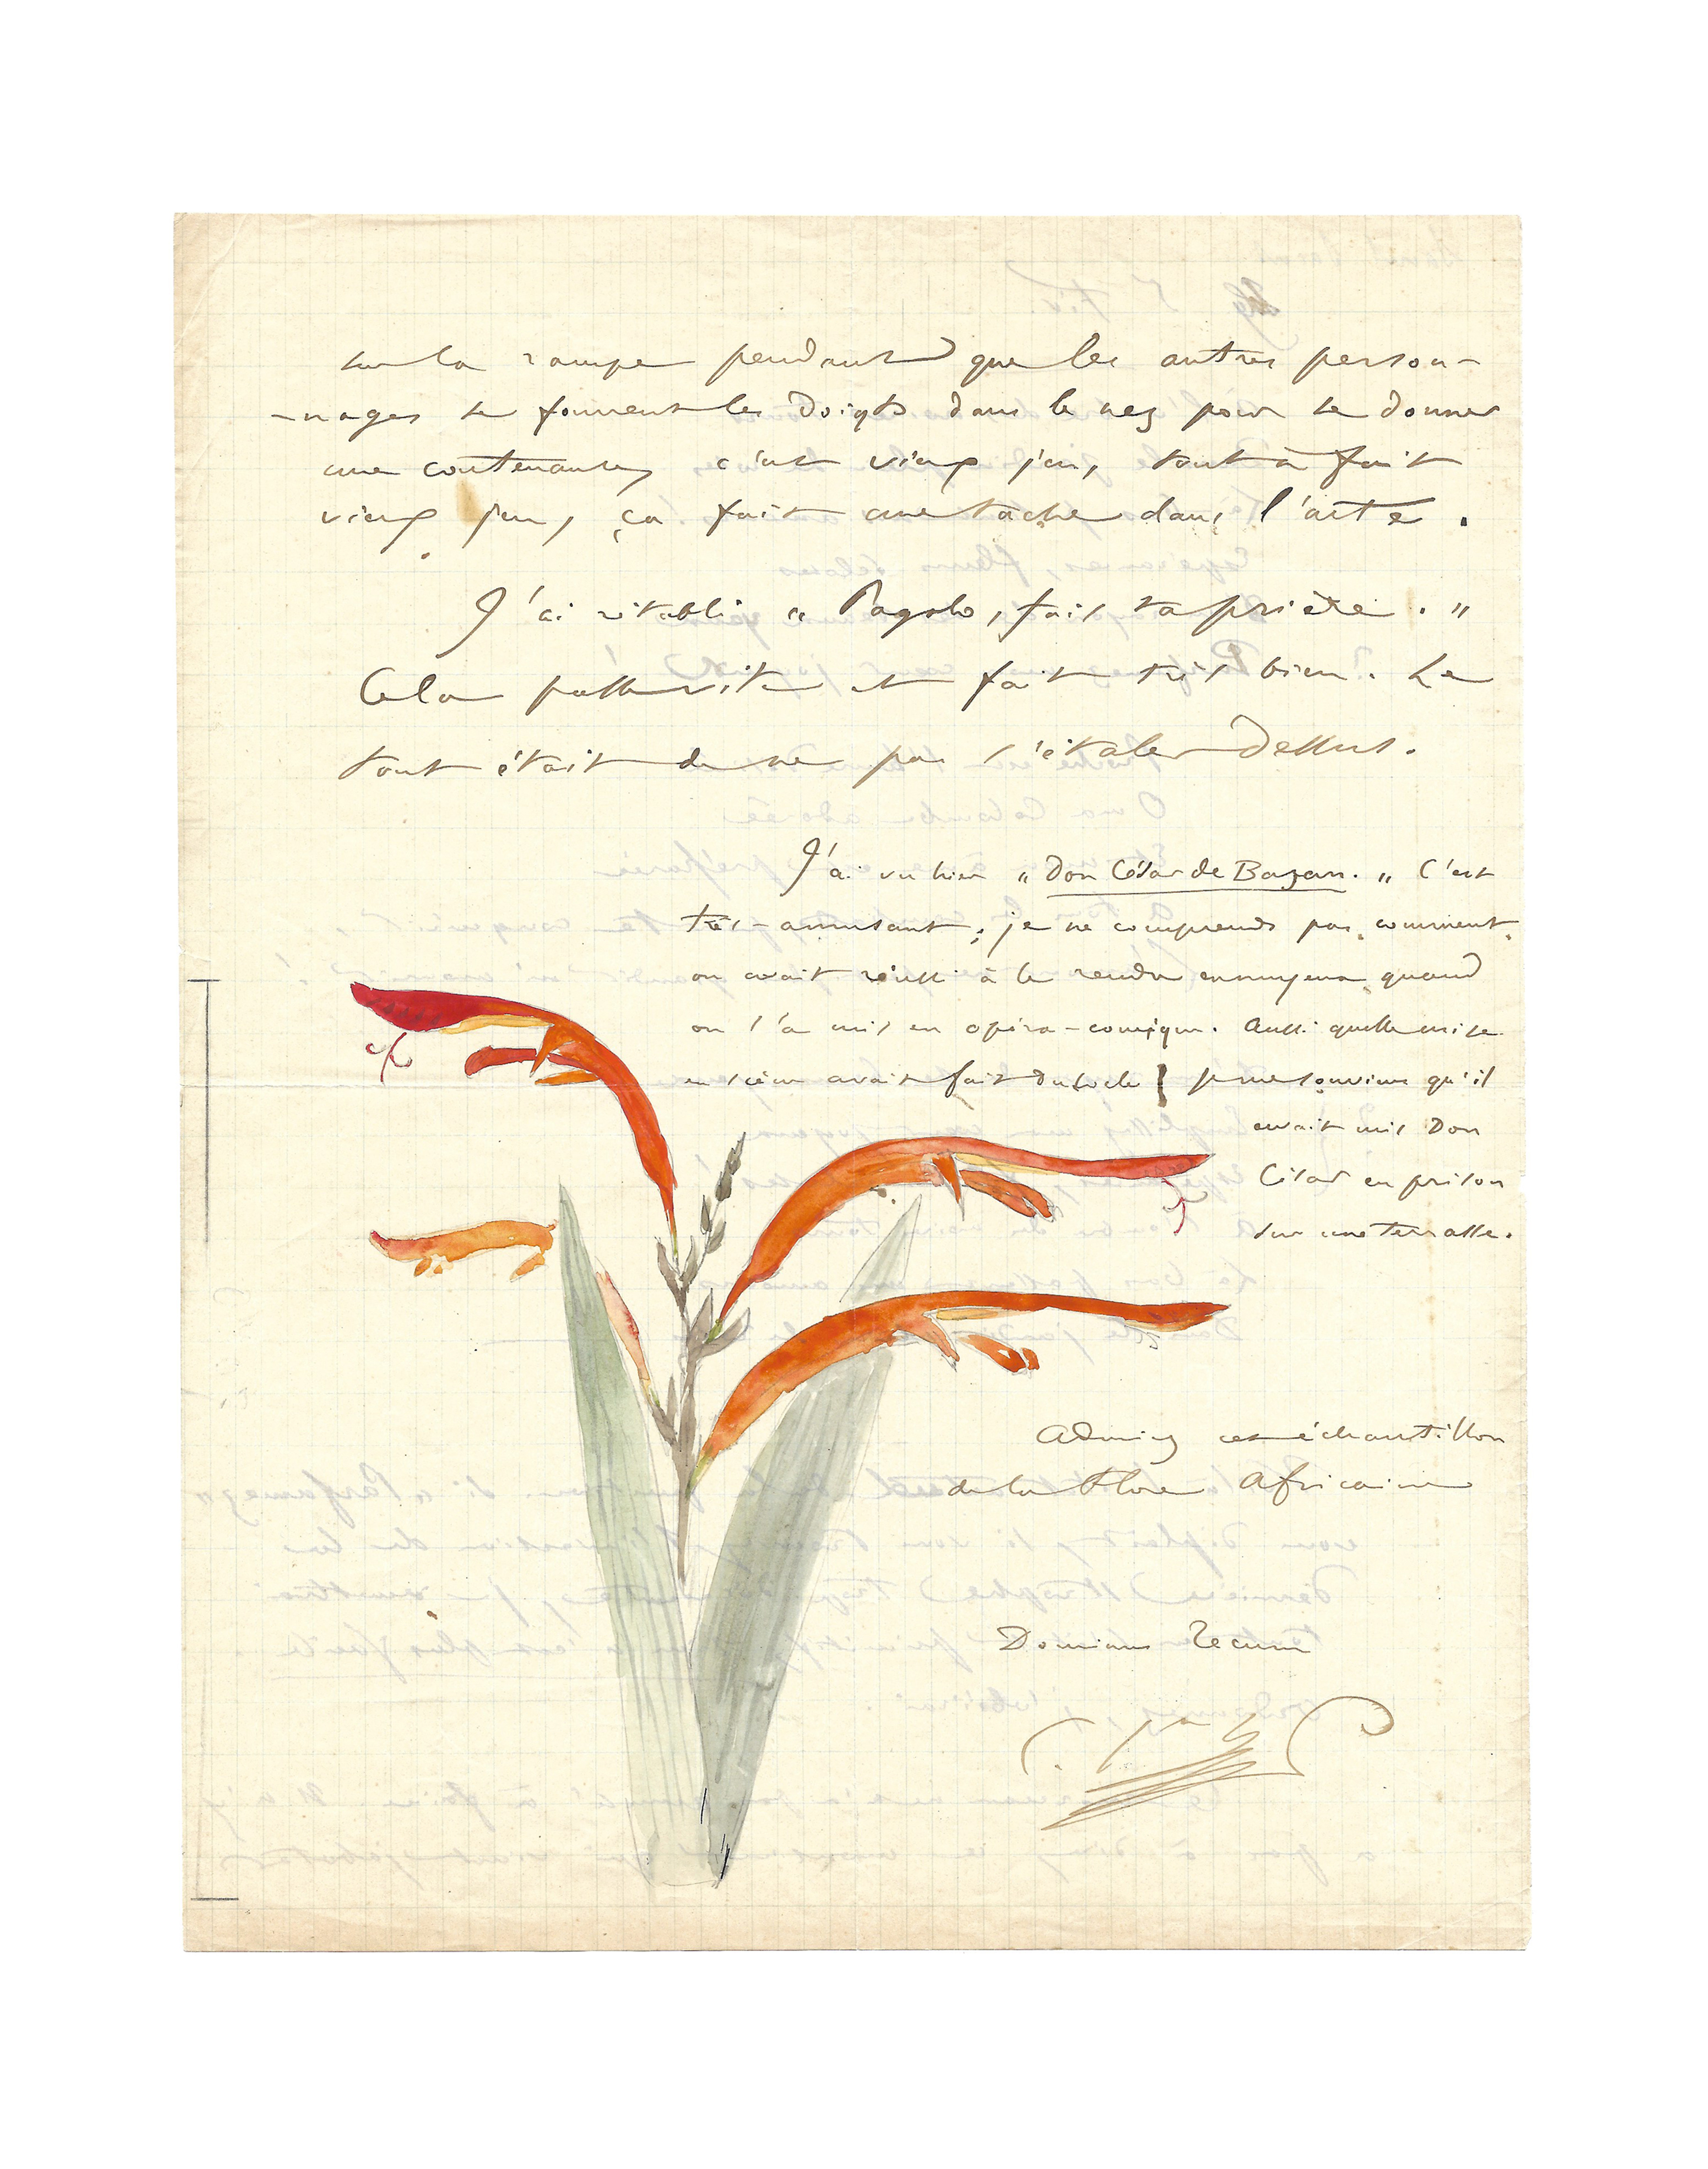 sur la rampe pendant que les autres person-
-nages se fourrent les doigts dans le nez pour se donner
une contenance, c'est vieux jeu, tout à fait
vieux jeu, ça fait une tache dans l'arte.
J'ai rétabli "Pagolo, fais ta prière."
Cela passe vite et fait très bien. Le
tout était de ne pas s'étaler dessus.
J'ai vu hier "Don César de Bazan." C'est
très-amusant; je ne comprends pas comment
on avait réussi à le rendre ennuyeux quand
on l'a mis en opéra-comique. Aussi quelle mise
en scène avait fait du Locle! je me souviens qu'il
avait mis Don
César en prison
sur une terrasse.
Admirez cet échantillon
de la Flore Africaine
Dominus Tecum
C.